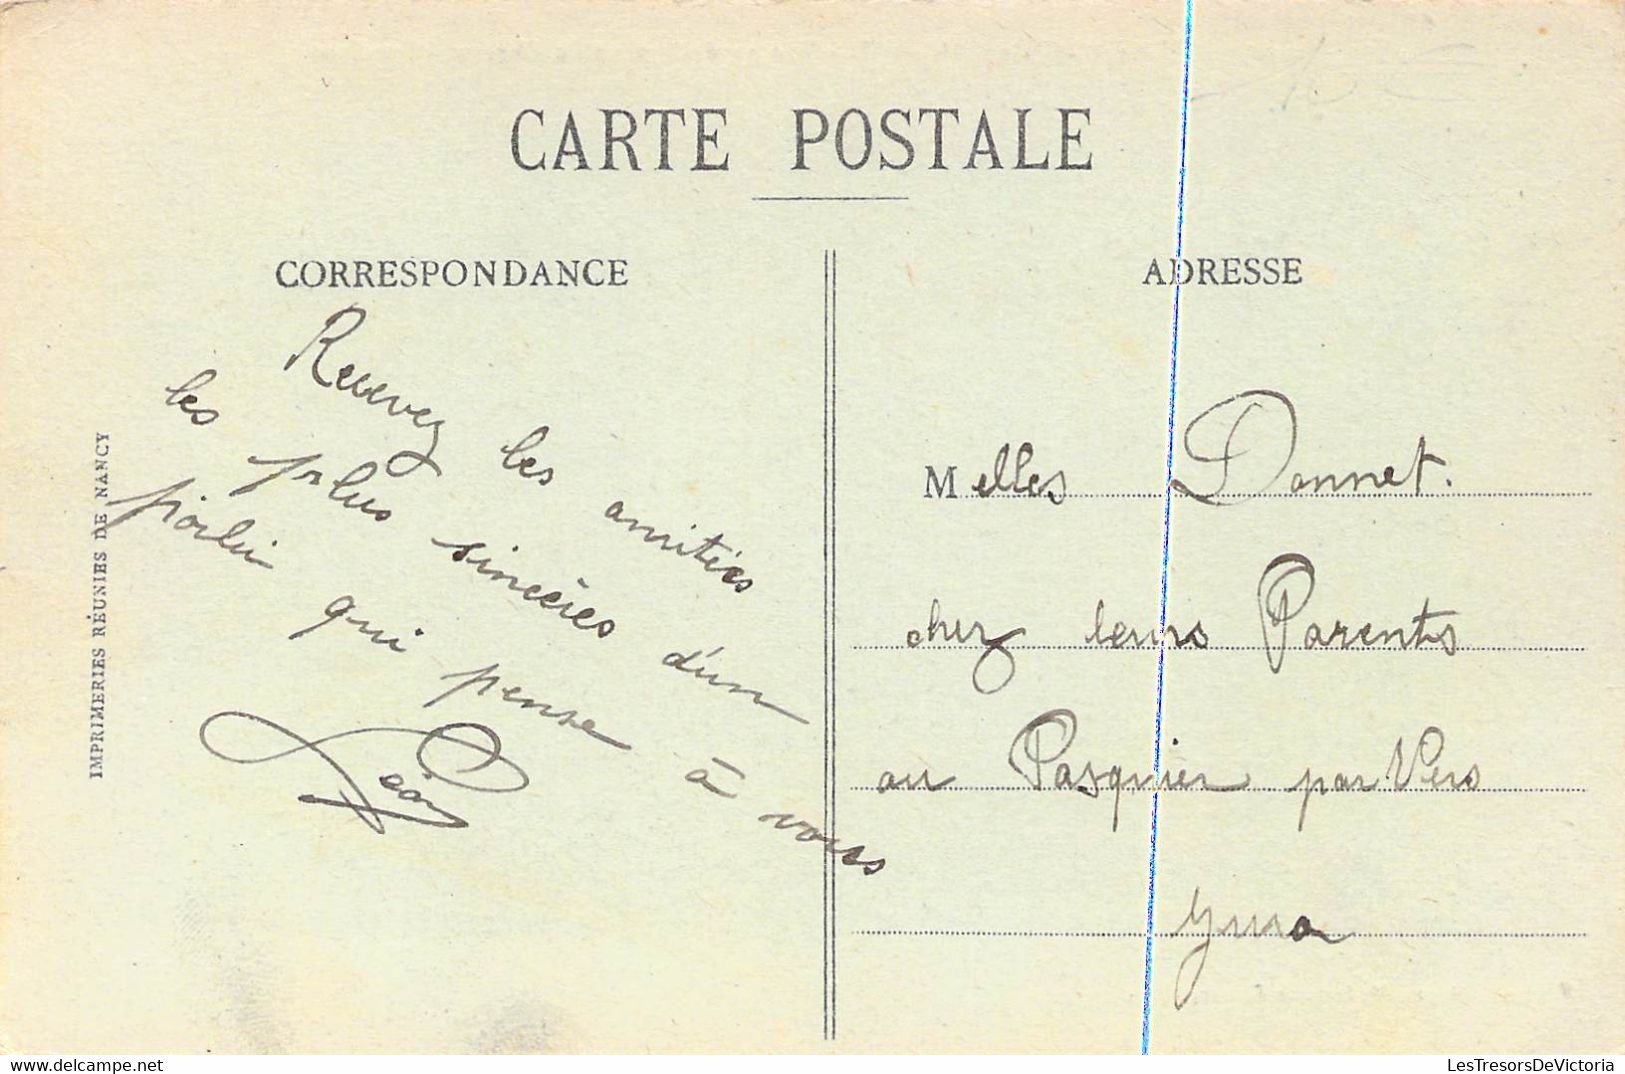 CARTE POSTALE
CORRESPONDANCE
Recevez les amitiés
les plus sincères d'un
poilu qui pense à vous
Léon
IMPRIMERIES RÉUNIES DE NANCY
ADRESSE
Melles Donnet.
chez leurs Parents
au Pasquier par Vers
Jura
www.delcampe.net
LesTresorsDeVictoria